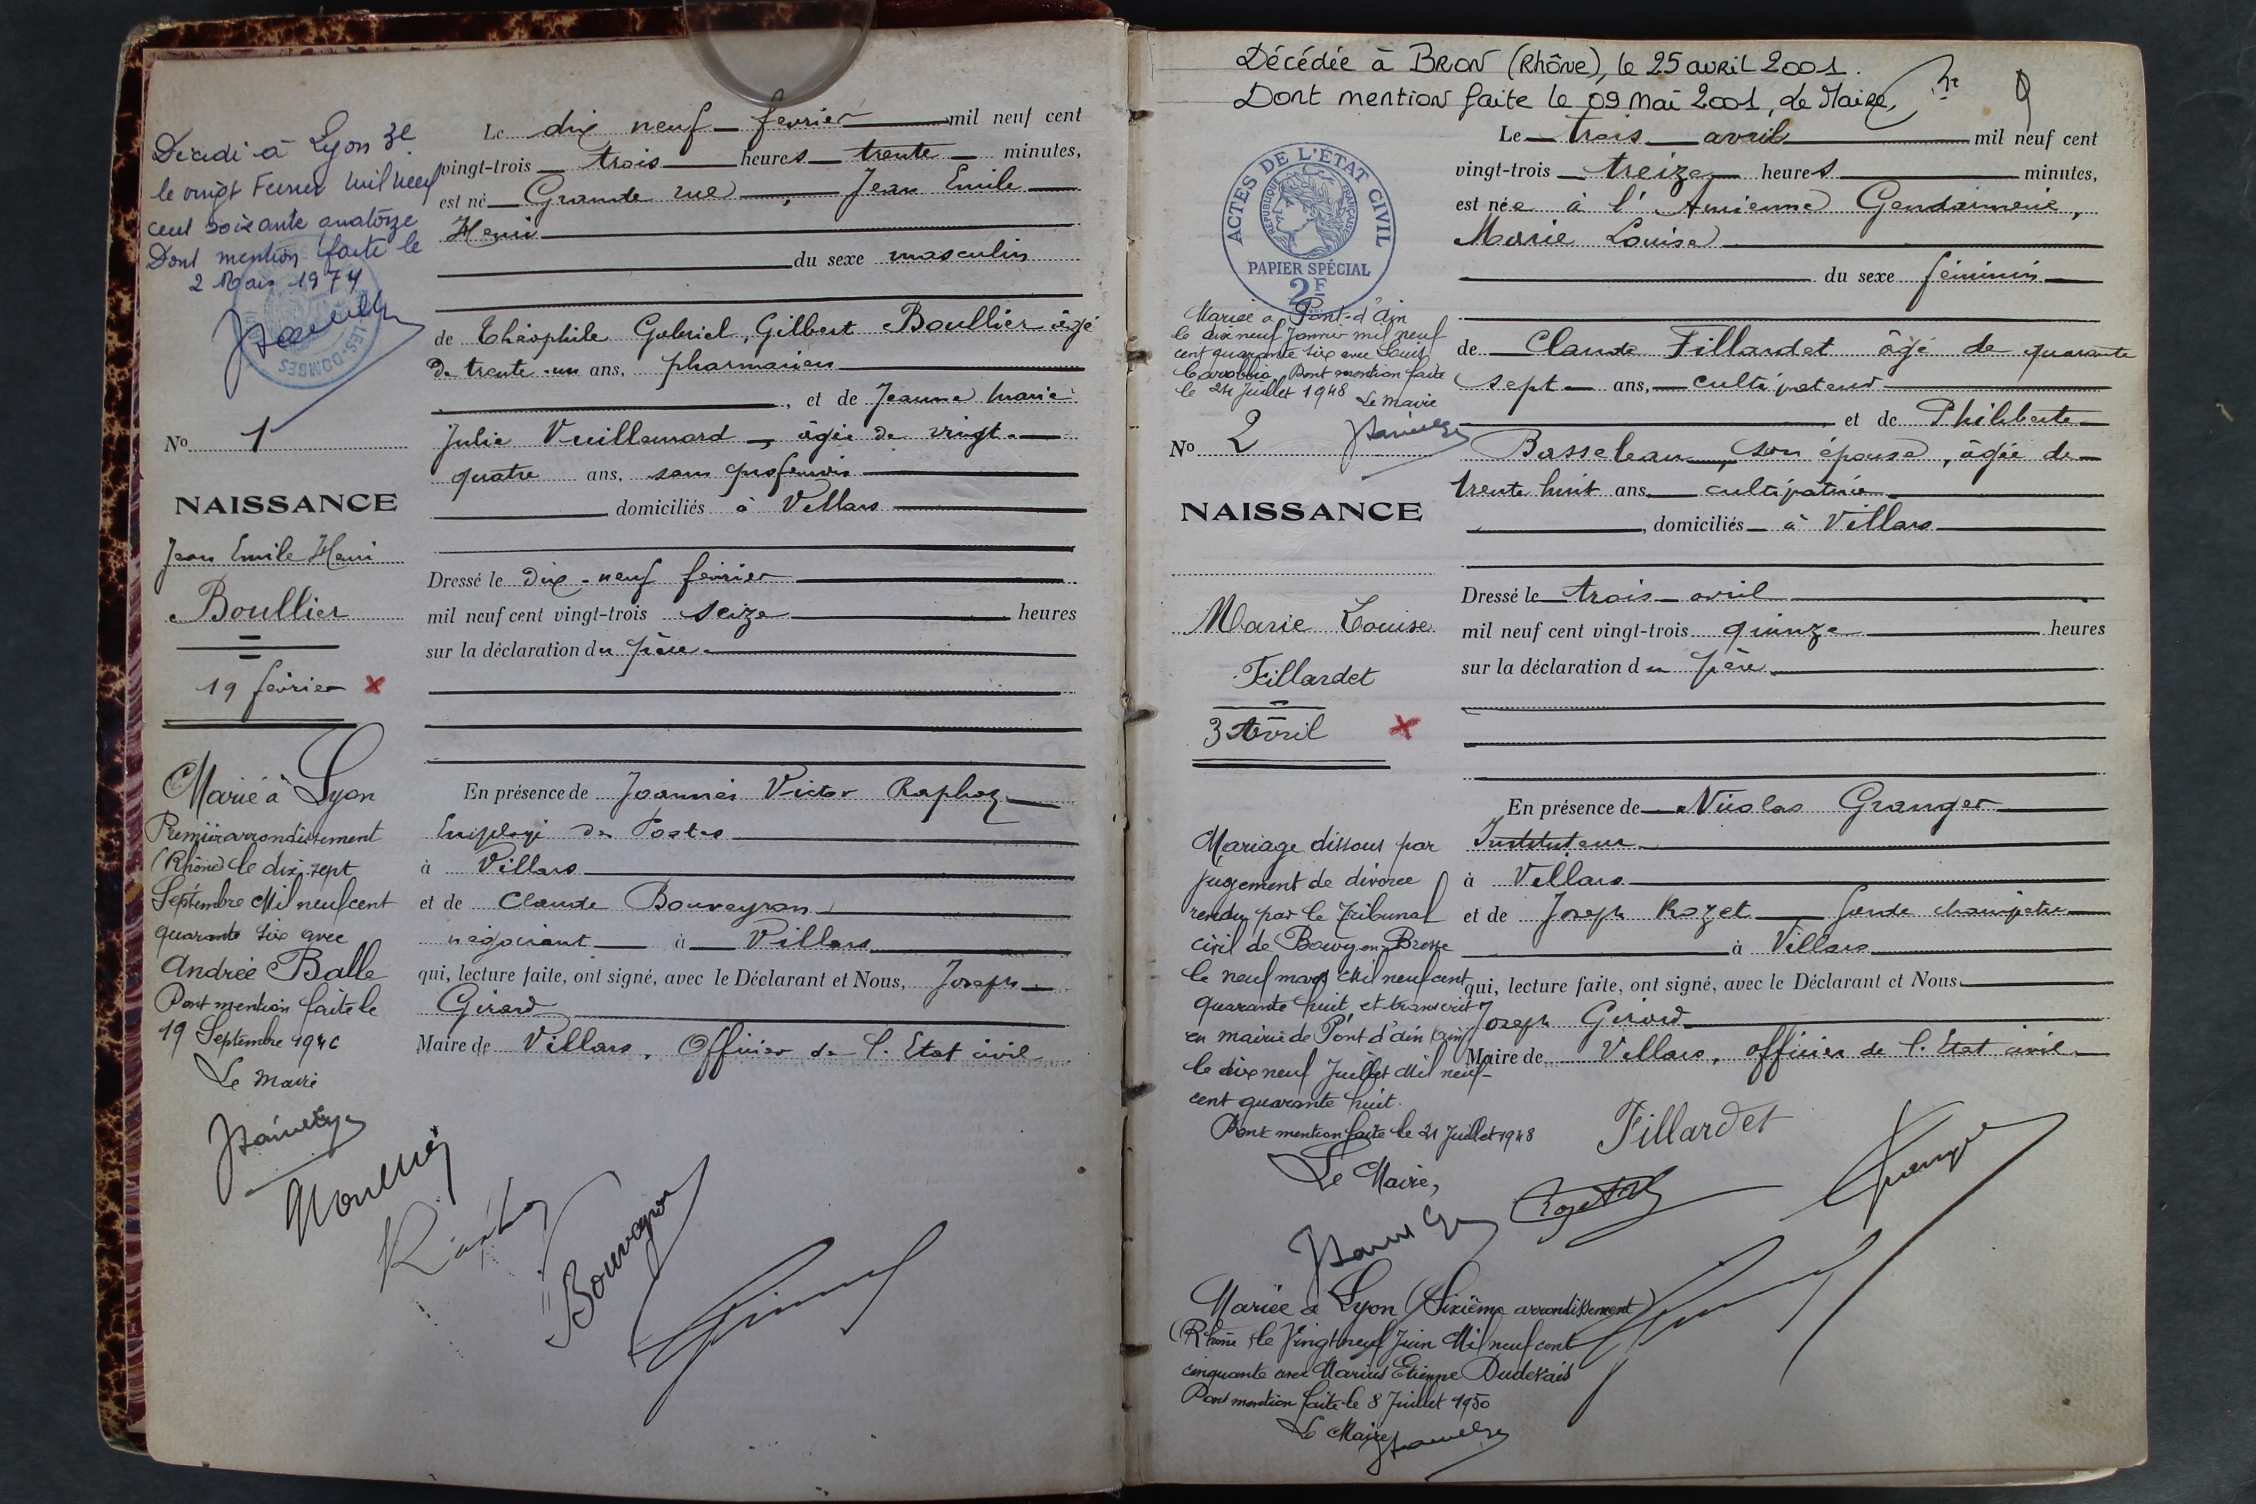 Décédé à Lyon 3e
le vingt Fevrier mil neuf
cent soixante quatorze
Dont mention faite le
2 Mars 1974
LES-DOMBES
No 1
NAISSANCE
Jean Emile Henri
Boullier
19 février
Marié à Lyon
Premier arrondissement
(Rhône) le dix-sept
Septembre Mil neuf cent
quarante six avec
Andrée Balle
Dont mention faite le
19 Septembre 1946
Le Maire
Le dix neuf février mil neuf cent
vingt-trois trois heures trente minutes,
est né Grande rue, Jean Emile
Henri
du sexe masculin
de Théophile Gabriel, Gilbert Boullier âgé
de trente-un ans, pharmacien
, et de Jeanne Marie
Julie Vuillemard, âgée de vingt-
quatre ans, sans profession
domiciliés à Villars
Dressé le dix-neuf février
mil neuf cent vingt-trois seize heures
sur la déclaration du père
En présence de Joannès Victor Raphoz
Employé des Postes
à Villars
et de Claude Bouveyron
négociant à Villars
qui, lecture faite, ont signé, avec le Déclarant et Nous, Joseph
Girard
Maire de Villars, Officier de l'Etat civil
Boullier
Raphoz
Bouveyron
Girard
Décédée à BRON (Rhône), le 25 avril 2001.
Dont mention faite le 09 Mai 2001, Le Maire,
9
ACTES DE L'ÉTAT CIVIL
RÉPUBLIQUE FRANÇAISE
PAPIER SPÉCIAL
2F
Mariée à Pont-d'Ain
le dix neuf Janvier mil neuf
cent quarante six avec Louis
Dont mention faite
le 24 Juillet 1948 Le Maire
No 2
NAISSANCE
Marie Louise
Fillardet
3 Avril
Mariage dissous par
jugement de divorce
rendu par le Tribunal
civil de Bourg en Bresse
le neuf mars Mil neuf cent
quarante huit et transcrit
en mairie de Pont d'ain (Ain)
le dix neuf Juillet Mil neuf
cent quarante huit.
Dont mention faite le 21 Juillet 1948
Le Maire,
Le trois avril mil neuf cent
vingt-trois treize heures minutes,
est née à l'Ancienne Gendarmerie,
Marie Louise
du sexe féminin
de Claude Fillardet âgé de quarante
sept ans, cultivateur
et de Philiberte
Basseleau, son épouse, âgée de
trente huit ans cultivatrice
, domiciliés à Villars
Dressé le trois avril
mil neuf cent vingt-trois quinze heures
sur la déclaration du père
En présence de Nicolas Granger
Instituteur
à Villars
et de Joseph Rozet Garde champêtre
à Villars
qui, lecture faite, ont signé, avec le Déclarant et Nous
Joseph Girard
Maire de Villars, officier de l'Etat civil
Fillardet
Rozet
Granger
Girard
Mariée à Lyon (Sixième arrondissement)
(Rhône) le Vingt neuf Juin Mil neuf cent
cinquante avec Marius Etienne Dudevais
Dont mention faite le 8 Juillet 1950
Le Maire